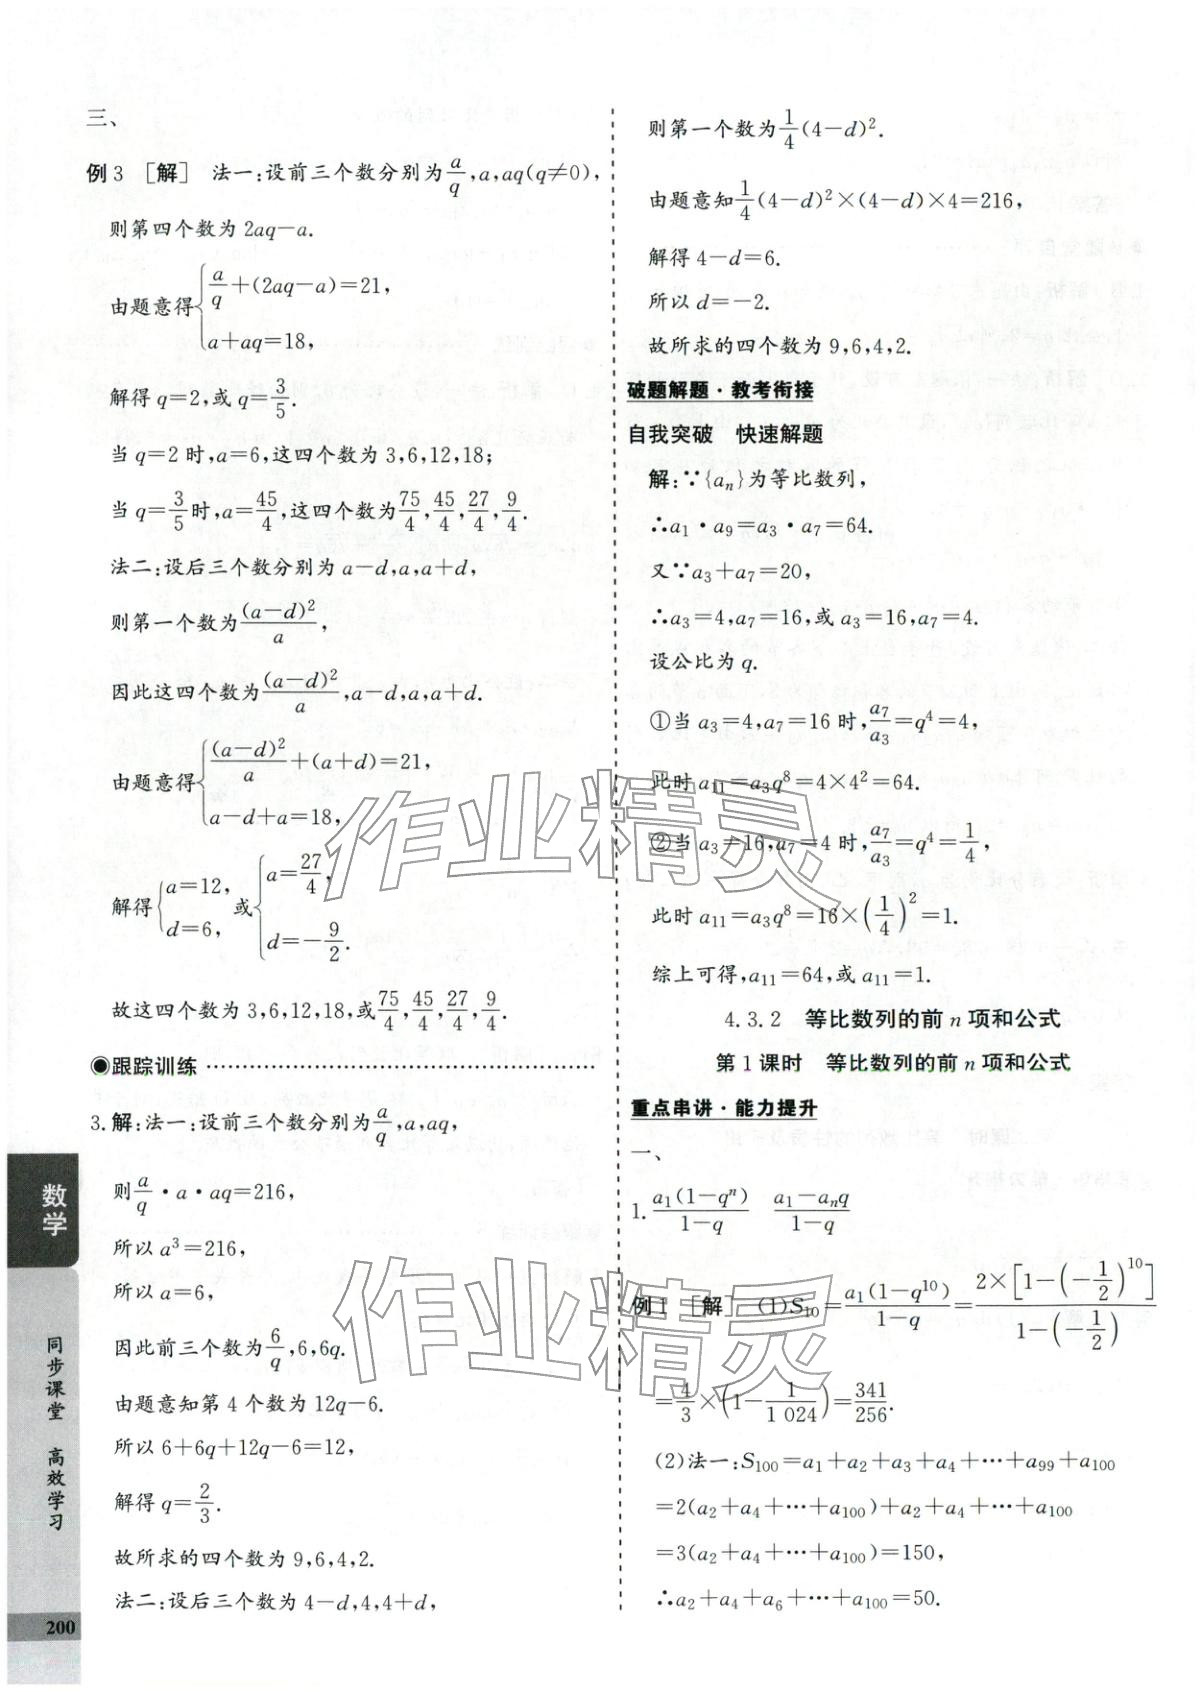 三、
例3 [解] 法一:设前三个数分别为a/q,a,aq(q≠0),
则第四个数为2aq-a.
由题意得{a/q+(2aq-a)=21,
a+aq=18,
解得q=2,或q=3/5.
当q=2时,a=6,这四个数为3,6,12,18;
当q=3/5时,a=45/4,这四个数为75/4,45/4,27/4,9/4.
法二:设后三个数分别为a-d,a,a+d,
则第一个数为(a-d)²/a,
因此这四个数为(a-d)²/a,a-d,a,a+d.
由题意得{(a-d)²/a+(a+d)=21,
a-d+a=18,
解得{a=12, d=6, 或{a=27/4, d=-9/2.
故这四个数为3,6,12,18,或75/4,45/4,27/4,9/4.
◉跟踪训练
3.解:法一:设前三个数分别为a/q,a,aq,
则a/q·a·aq=216,
所以a³=216,
所以a=6,
因此前三个数为6/q,6,6q.
由题意知第4个数为12q-6.
所以6+6q+12q-6=12,
解得q=2/3.
故所求的四个数为9,6,4,2.
法二:设后三个数为4-d,4,4+d,
则第一个数为1/4(4-d)².
由题意知1/4(4-d)²×(4-d)×4=216,
解得4-d=6.
所以d=-2.
故所求的四个数为9,6,4,2.
破题解题·教考衔接
自我突破 快速解题
解:∵{aₙ}为等比数列,
∴a₁·a₉=a₃·a₇=64.
又∵a₃+a₇=20,
∴a₃=4,a₇=16,或a₃=16,a₇=4.
设公比为q.
①当a₃=4,a₇=16时,a₇/a₃=q⁴=4,
此时a₁₁=a₃q⁸=4×4²=64.
②当a₃=16,a₇=4时,a₇/a₃=q⁴=1/4,
此时a₁₁=a₃q⁸=16×(1/4)²=1.
综上可得,a₁₁=64,或a₁₁=1.
4.3.2 等比数列的前n项和公式
第1课时 等比数列的前n项和公式
重点串讲·能力提升
一、
1. a₁(1-qⁿ)/1-q a₁-aₙq/1-q
例1 [解] (1)S₁₀=a₁(1-q¹⁰)/1-q=2×[1-(-1/2)¹⁰]/1-(-1/2)
=4/3×(1-1/1 024)=341/256.
(2)法一:S₁₀₀=a₁+a₂+a₃+a₄+…+a₉₉+a₁₀₀
=2(a₂+a₄+…+a₁₀₀)+a₂+a₄+…+a₁₀₀
=3(a₂+a₄+…+a₁₀₀)=150,
∴a₂+a₄+a₆+…+a₁₀₀=50.
数学
同步课堂 高效学习
200
作业精灵
作业精灵